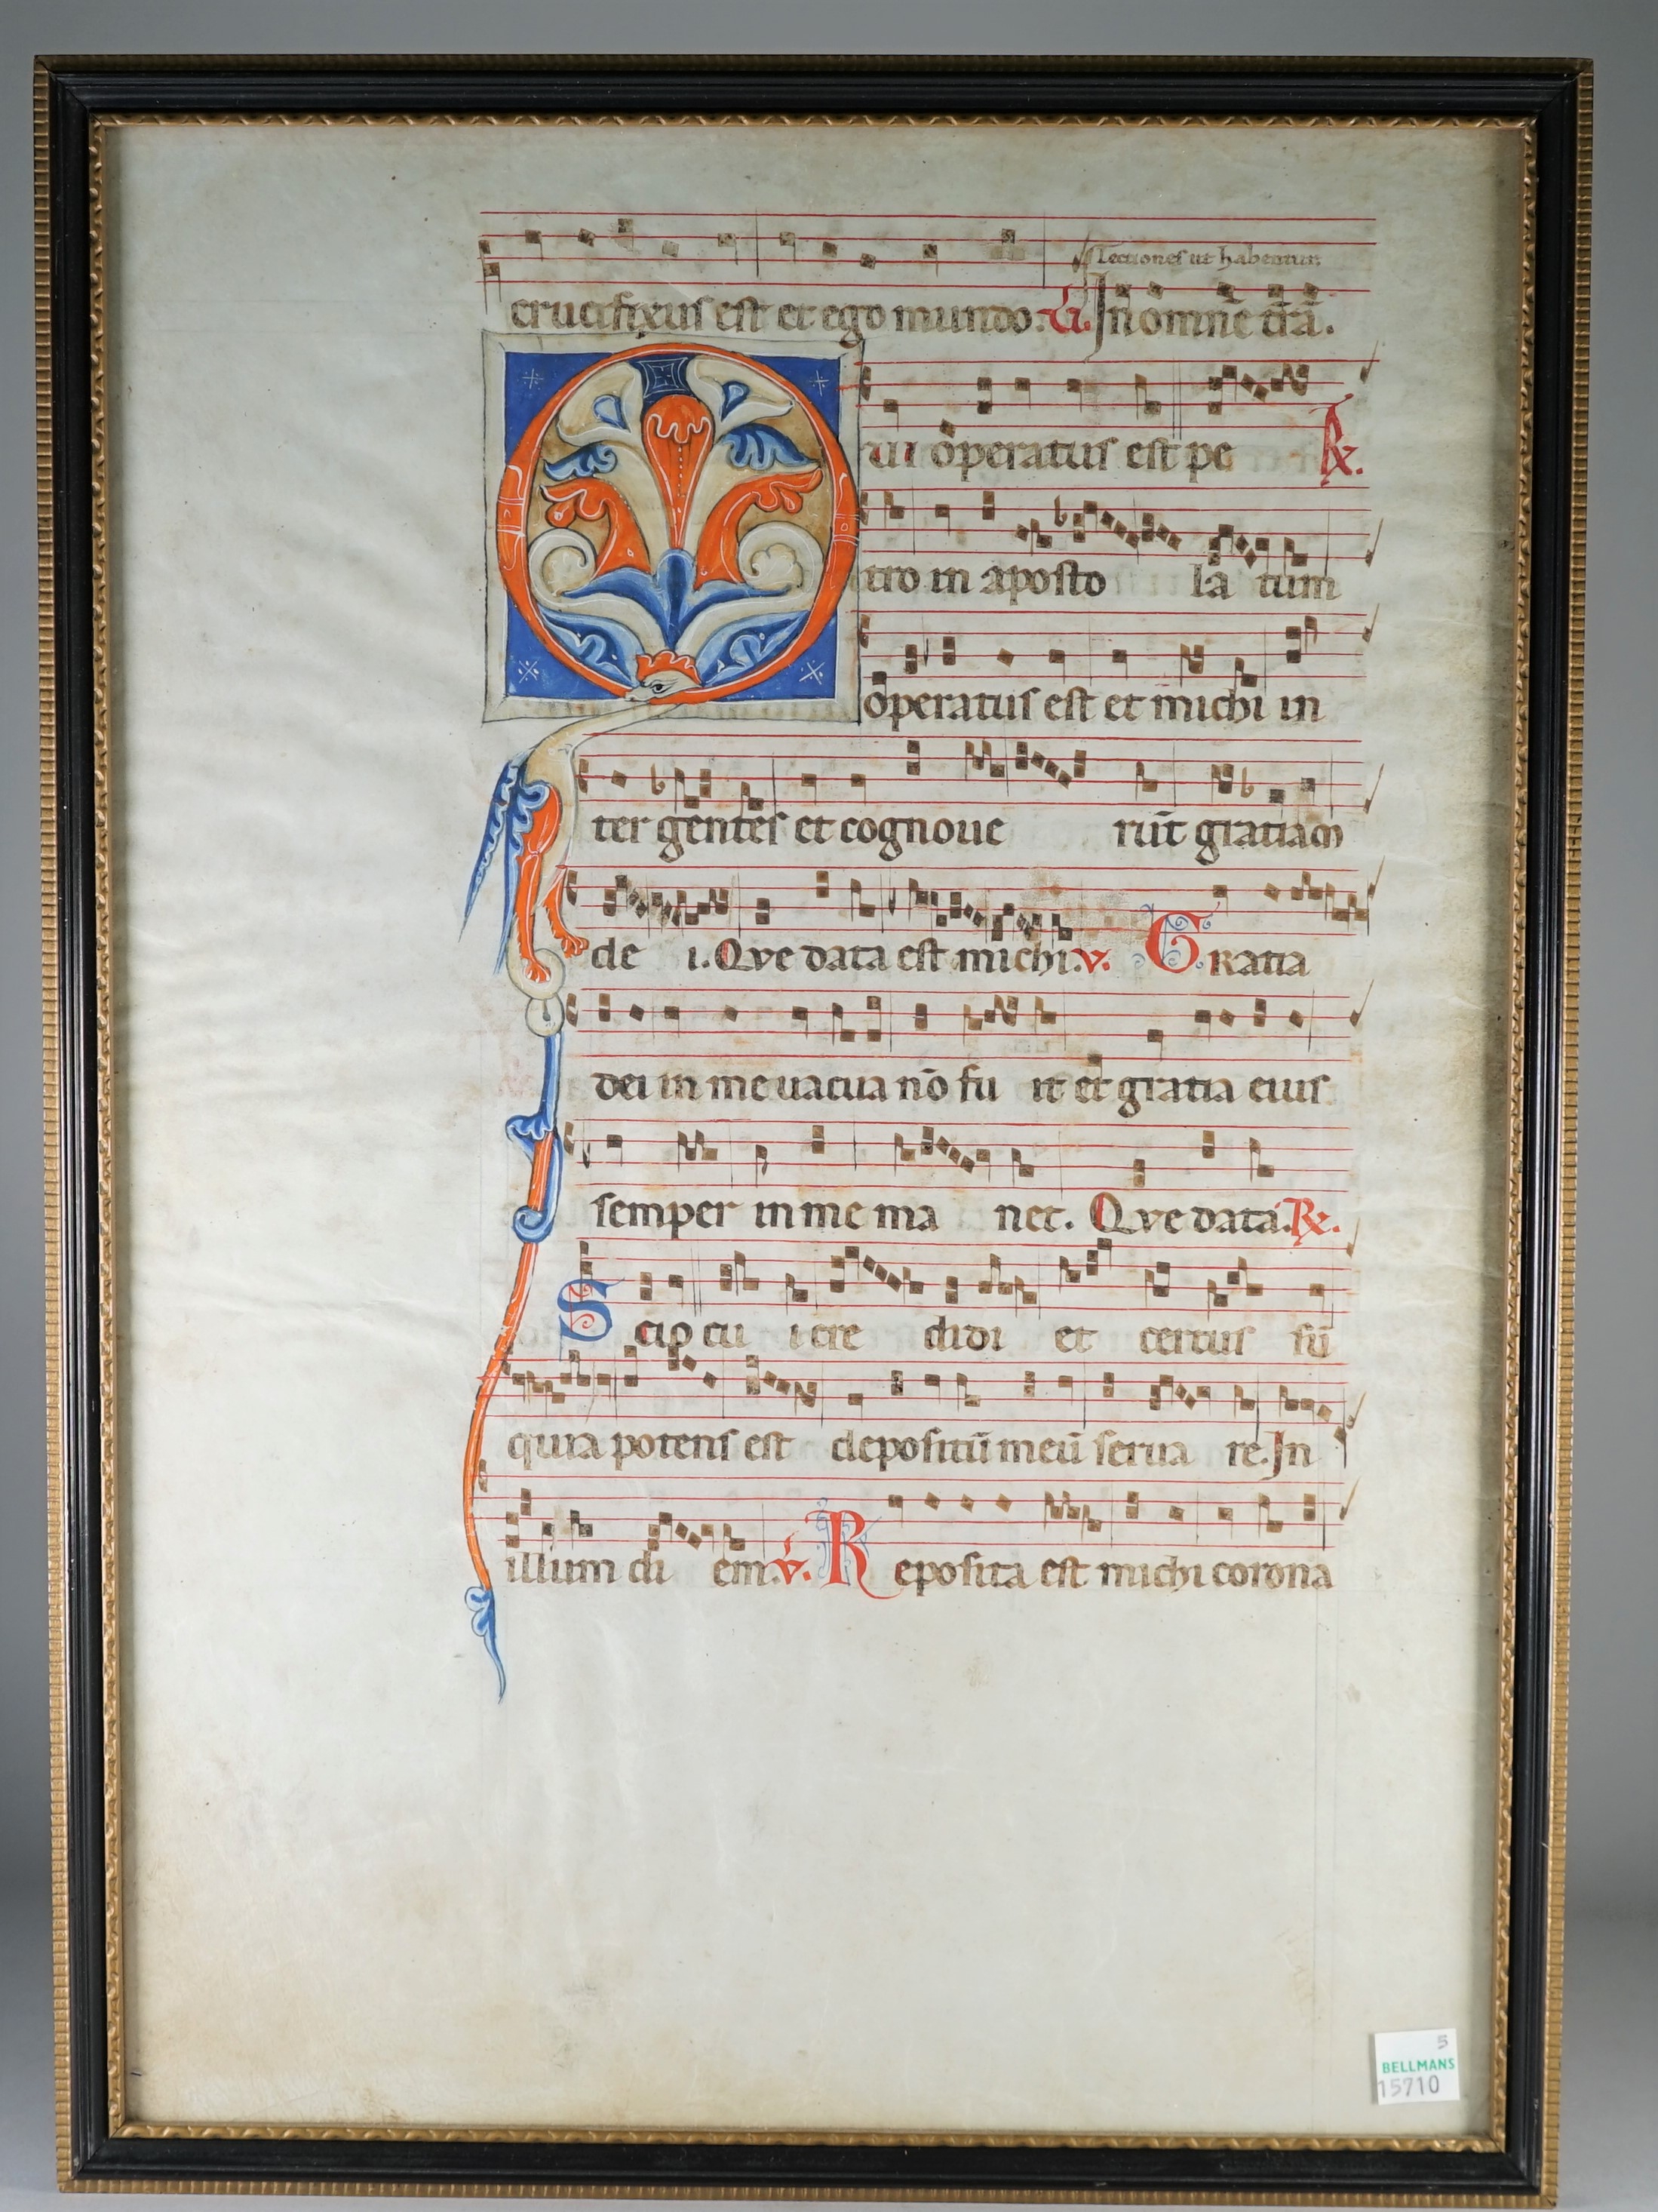 Lectiones ut habentur.
crucifixus est et ego mundo. V. In omnē t̄rā.
Qui operatus est pe R.
tro in aposto la tum
operatus est et michi in
ter gentes et cognoue rūt gratiam
de i. Que data est michi. v. Gratia
dei in me uacua nō fu it et gratia eius
semper in me ma net. Que data. R.
Scio cu i cre didi et certus sū
quia potens est depositū meū serua re. In
illum di em. v. Reposita est michi corona
5
BELLMANS
15710